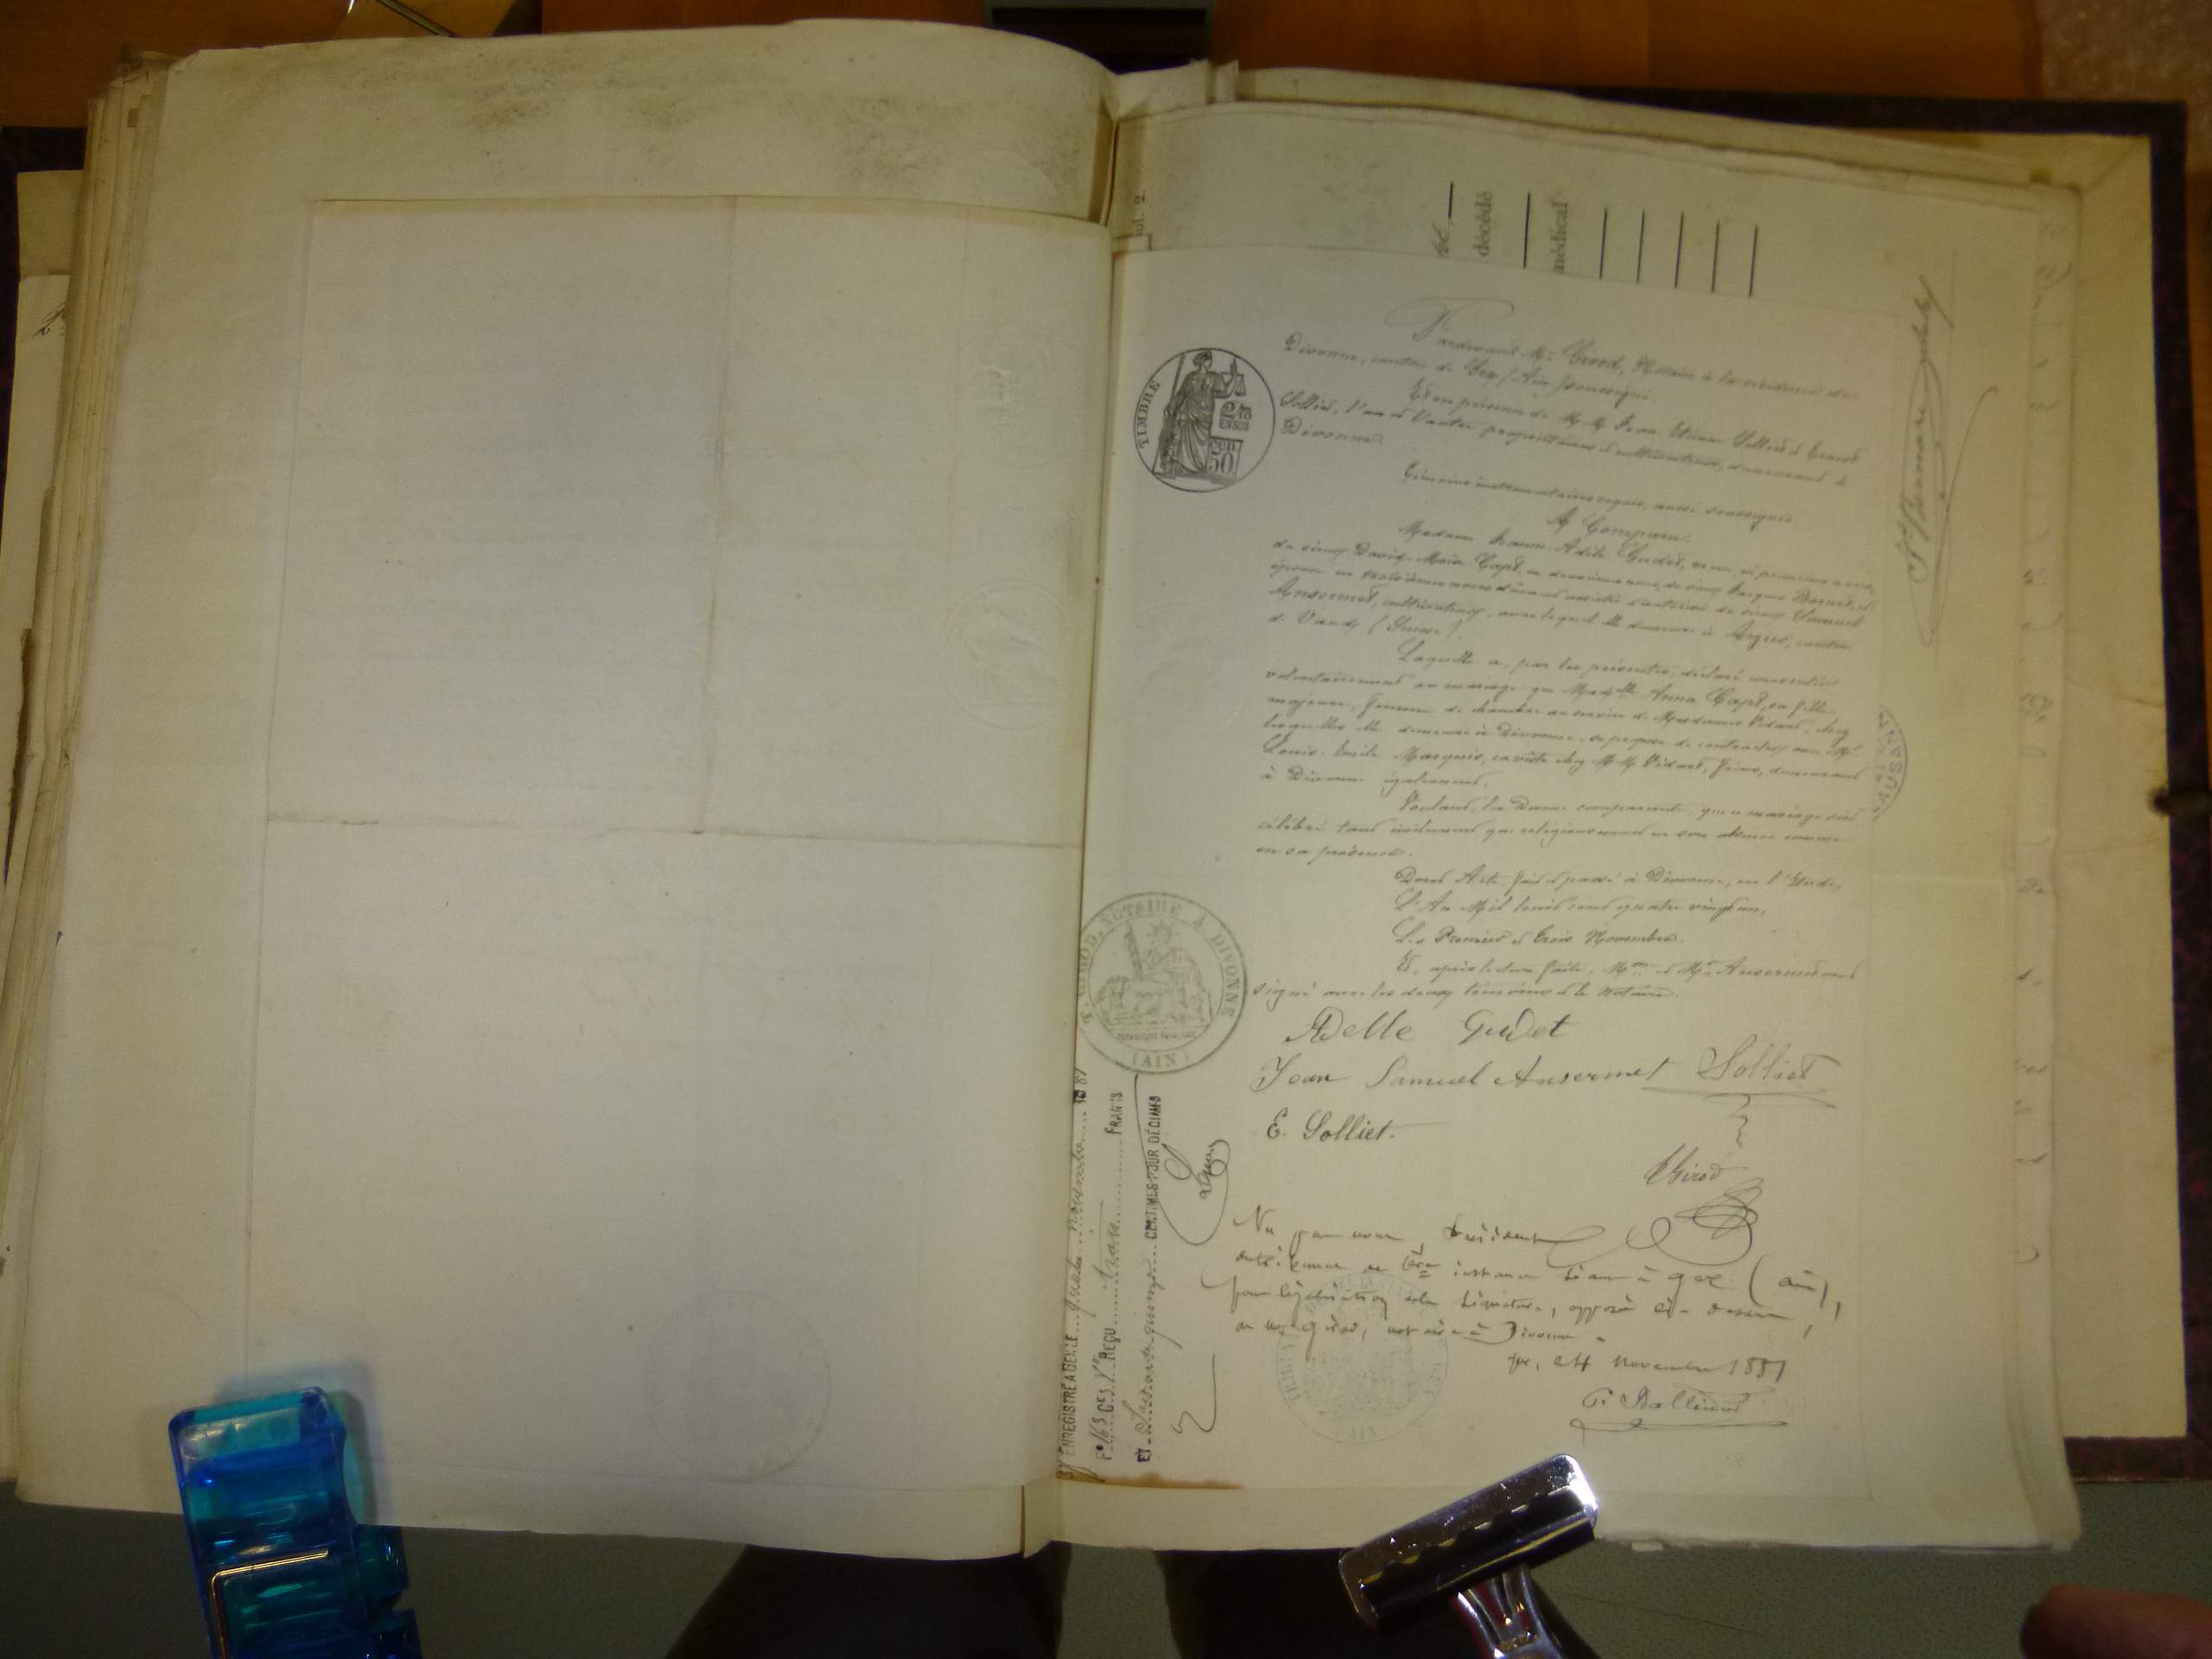 ul. 2.
décédé
médical
Pardevant Me Girod, Notaire à la résidence de
Divonne, canton de Gex (Ain) soussigné.
Et en présence de M.M. Jean Etienne Solliet & Ernest
Solliet, l'un et l'autre propriétaires & cultivateurs, demeurant à
Divonne
Témoins instrumentaires requis, aussi soussignés
A Comparu:
Madame Jeanne Adèle Gudet, veuve, en premières noces,
du sieur David Moïse Capt, en deuxièmes noces, du sieur Jacques Bornet, et
épouse en troisièmes noces dûment assistée & autorisée du sieur Samuel
Ansermet, cultivateur, avec lequel elle demeure à canton
de Vaud, (Suisse).
Laquelle a, par les présentes, déclaré consentir
volontairement au mariage que Madlle Anna Capt, sa fille
majeure, femme de chambre au service de Mesdames Vidart, chez
lesquelles elle demeure à Divonne, se propose de contracter avec Mr
Louis Emile Marquis, caviste chez M.M. Vidart, frères, demeurant
à Divonne également.
Voulant, la Dame comparante, que ce mariage soit
célébré tant civilement que religieusement en son absence comme
en sa présence.
Dont Acte, fait & passé à Divonne, en l'Etude,
L'An Mil huit cent quatre vingt un,
Les Premier et trois Novembre.
Et, après lecture faite, Mme & Mr Ansermet ont
signé avec les deux témoins & le notaire.
Adelle Gudet
Jean Samuel Ansermet Solliet
E. Solliet.
Girod
Vu par nous, Président
du tribunal de 1ère instance séant à Gex (Ain),
pour légalisation de la signature, apposée ci-dessus,
de me Girod, notaire à Divonne.
Gex, le 4 novembre 1881
TIMBRE
2/10 EN SUS
1 Fen. 50
GIROD, NOTAIRE A DIVONNE
(AIN)
ENREGISTRÉ A GEX LE quatre novembre 1881
Fo 163 Cse 5 Vo REÇU trois FRANCS
ET Soixante-quinze CENTIMES POUR DÉCIMES
LAUSANNE